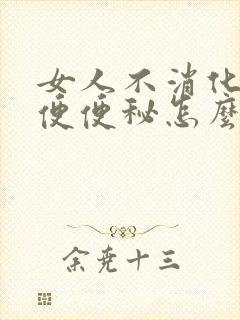 女人不消化
便便秘怎麼
余堯十三